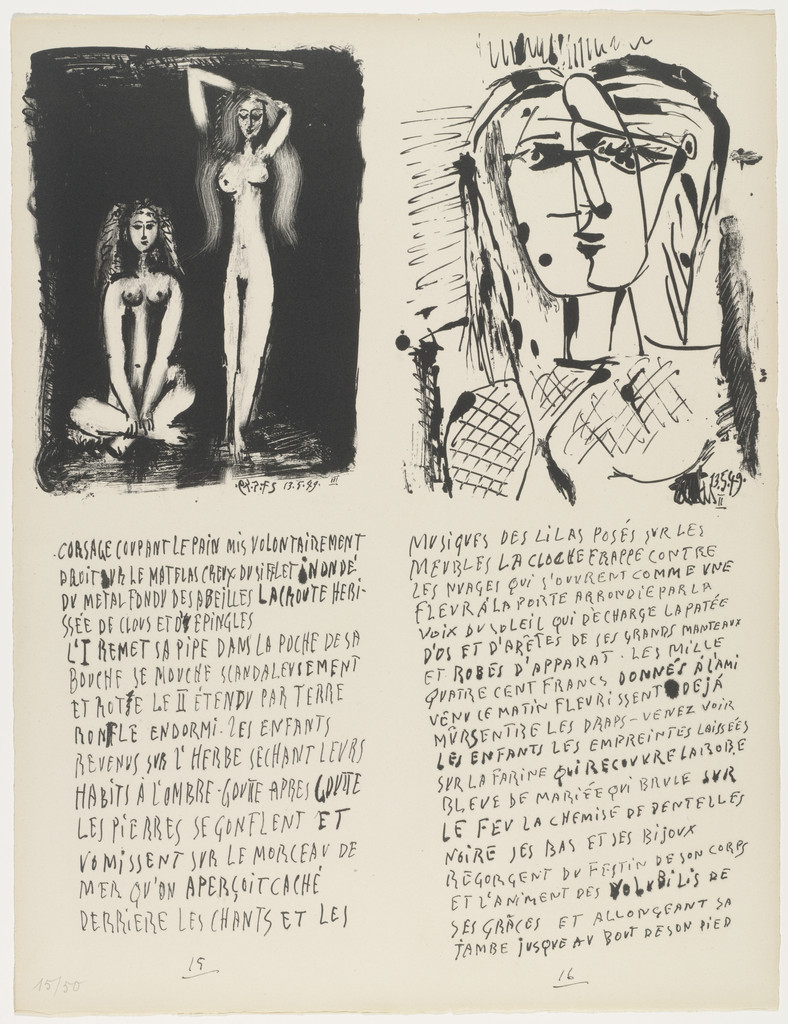 13.5.49.
III
13.5.49.
II
CORSAGE COUPANT LE PAIN MIS VOLONTAIREMENT
DROIT SUR LE MATELAS CREUX DU SIFFLET INONDÉ
DU METAL FONDU DES ABEILLES LA CROUTE HERI-
SSÉE DE CLOUS ET D'EPINGLES
L'I REMET SA PIPE DANS LA POCHE DE SA
BOUCHE SE MOUCHE SCANDALEUSEMENT
ET ROTTE LE II ÉTENDU PAR TERRE
RONFLE ENDORMI. LES ENFANTS
REVENUS SUR L'HERBE SECHANT LEURS
HABITS À L'OMBRE - GOUTTE APRES GOUTTE
LES PIERRES SE GONFLENT ET
VOMISSENT SUR LE MORCEAU DE
MER QU'ON APERÇOIT CACHÉ
DERRIERE LES CHANTS ET LES
15
MUSIQUES DES LILAS POSÉS SUR LES
MEUBLES LA CLOCHE FRAPPE CONTRE
LES NUAGES QUI S'OUVRENT COMME UNE
FLEUR À LA PORTE ARRONDIE PAR LA
VOIX DU SOLEIL QUI DÈCHARGE LA PATÉE
D'OS ET D'ARÊTES DE SES GRANDS MANTEAUX
ET ROBES D'APPARAT. LES MILLE
QUATRE CENT FRANCS DONNÉS À L'AMI
VENU CE MATIN FLEURISSENT DEJÁ
MÛRS ENTRE LES DRAPS - VENEZ VOIR
LES ENFANTS LES EMPREINTES LAISSÉES
SUR LA FARINE QUI RECOUVRE LA ROBE
BLEUE DE MARIÉE QUI BRULE SUR
LE FEU LA CHEMISE DE DENTELLES
NOIRE SES BAS ET SES BIJOUX
REGORGENT DU FESTIN DE SON CORPS
ET L'ANIMENT DES VOLUBILIS DE
SES GRÂCES ET ALLONGEANT SA
JAMBE JUSQUE AU BOUT DE SON PIED
16
15/50